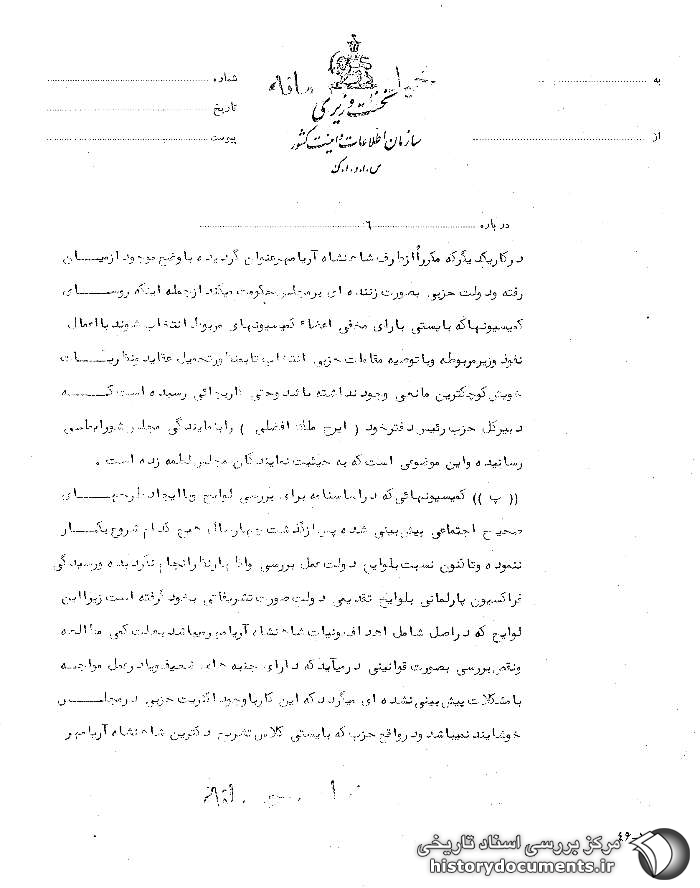 به
خیلی
شماره
نخست وزیری
تاریخ
از
سازمان اطلاعات و امنیت کشور
پیوست
س.ا.و.ا.ک
درباره ۶
در کار یکدیگر که مکرراً از طرف شاهنشاه آریامهر عنوان گردیده با وضع موجود از میان
رفته و دولت حزبی بصورت زننده ای بر مجلس حکومت میکند از جمله اینکه روسای
کمیسیونها که بایستی با رای مخفی اعضاء کمیسیونهای مربوط انتخاب شوند با اعمال
نفوذ وزیر مربوطه و با توصیه مقامات حزبی انتخاب تا بمنظور تحمیل عقاید و نظریات
خویش کوچکترین مانعی وجود نداشته باشد و حتی کار بجائی رسیده است که
دبیرکل حزب رئیس دفتر خود ( ایرج ملک افضلی ) را بنمایندگی مجلس شورایملی
رسانیده و این موضوعی است که به حیثیت نمایندگان مجلس لطمه زده است .
(( پ )) کمیسیونهائی که در اساسنامه برای بررسی لوایح و یا ایجاد طرحهای
صحیح اجتماعی پیش بینی شده پس از گذشت چهار سال هیچ کدام شروع بکار
ننموده و تا کنون نسبت بلوایح دولت عمل بررسی و اظهارنظر انجام نگردیده و رسیدگی
فراکسیون پارلمانی بلوایح تقدیمی دولت صورت تشریفاتی بخود گرفته است زیرا این
لوایح که در اصل شامل اهداف و نیات شاهنشاه آریامهر میباشد بعلت کمی مطالعه
و نقص بررسی بصورت قوانینی در میآید که دارای جنبه های ضعیف و یا در عمل مواجه
با مشکلات پیش بینی نشده ای میگردد که این کار با وجود اکثریت حزبی در مجلس
خوشایند نمیباشد و در واقع حزب که بایستی کلاس تشریح دکترین شاهنشاه آریامهر
مرکز بررسی اسناد تاریخی
historydocuments.ir